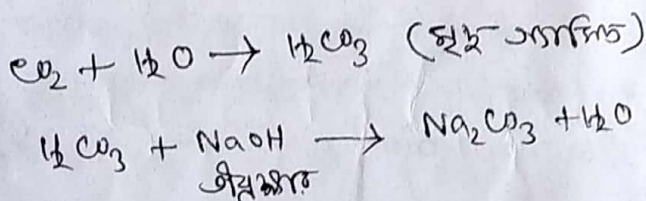 CO₂ + H₂O → H₂CO₃ (মৃদু এসিড)
H₂CO₃ + NaOH → Na₂CO₃ + H₂O
তীব্র ক্ষার